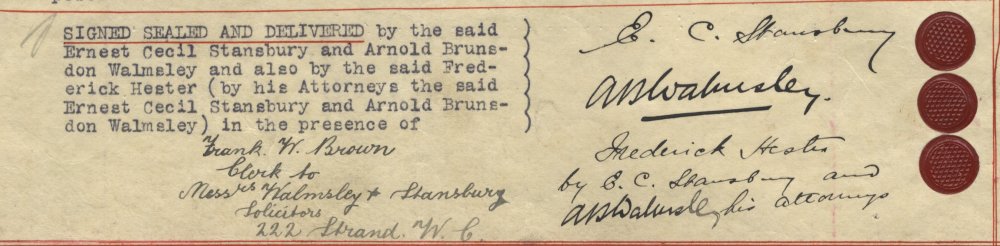 SIGNED SEALED AND DELIVERED by the said
Ernest Cecil Stansbury and Arnold Bruns-
don Walmsley and also by the said Fred-
erick Hester (by his Attorneys the said
Ernest Cecil Stansbury and Arnold Bruns-
don Walmsley) in the presence of
Frank. W. Brown
Clerk to
Messrs Walmsley & Stansbury
Solicitors
222 Strand. W. C
E. C. Stansbury
ABWalmsley.
Frederick Hester
by E. C. Stansbury and
ABWalmsley his attorneys